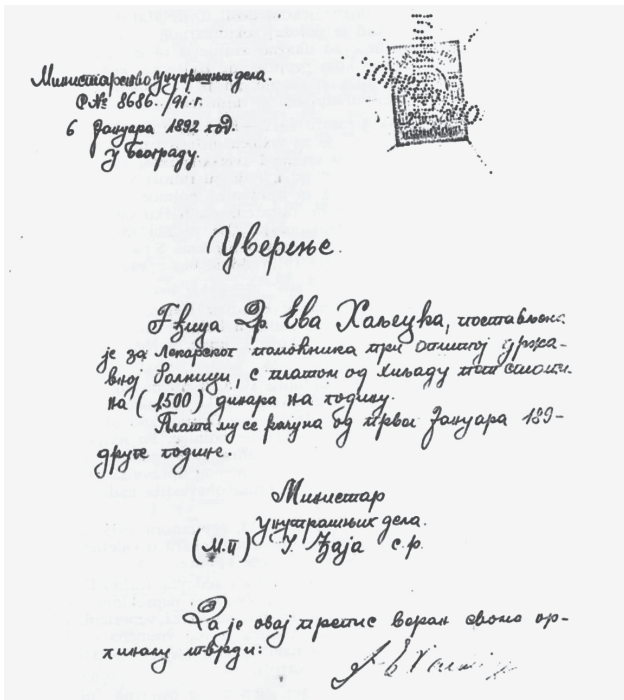 Министарство унутрашњих дела.
Р№ 8686./91. г.
6 Јануара 1892 год.
у Београду.
Уверење.
Гђица Др. Ева Хаљецка, постављена
је за лекарског помоћника при општој држа-
вној болници, с платом од хиљаду пет стоти-
на (1500) динара на годину.
Плата му се рачуна од првог Јануара 189-
друге године.
Министар
унутрашњих дела.
(М.П) Ј. Ђаја с.р.
Да је овај препис веран своме ори-
гиналу тврди: